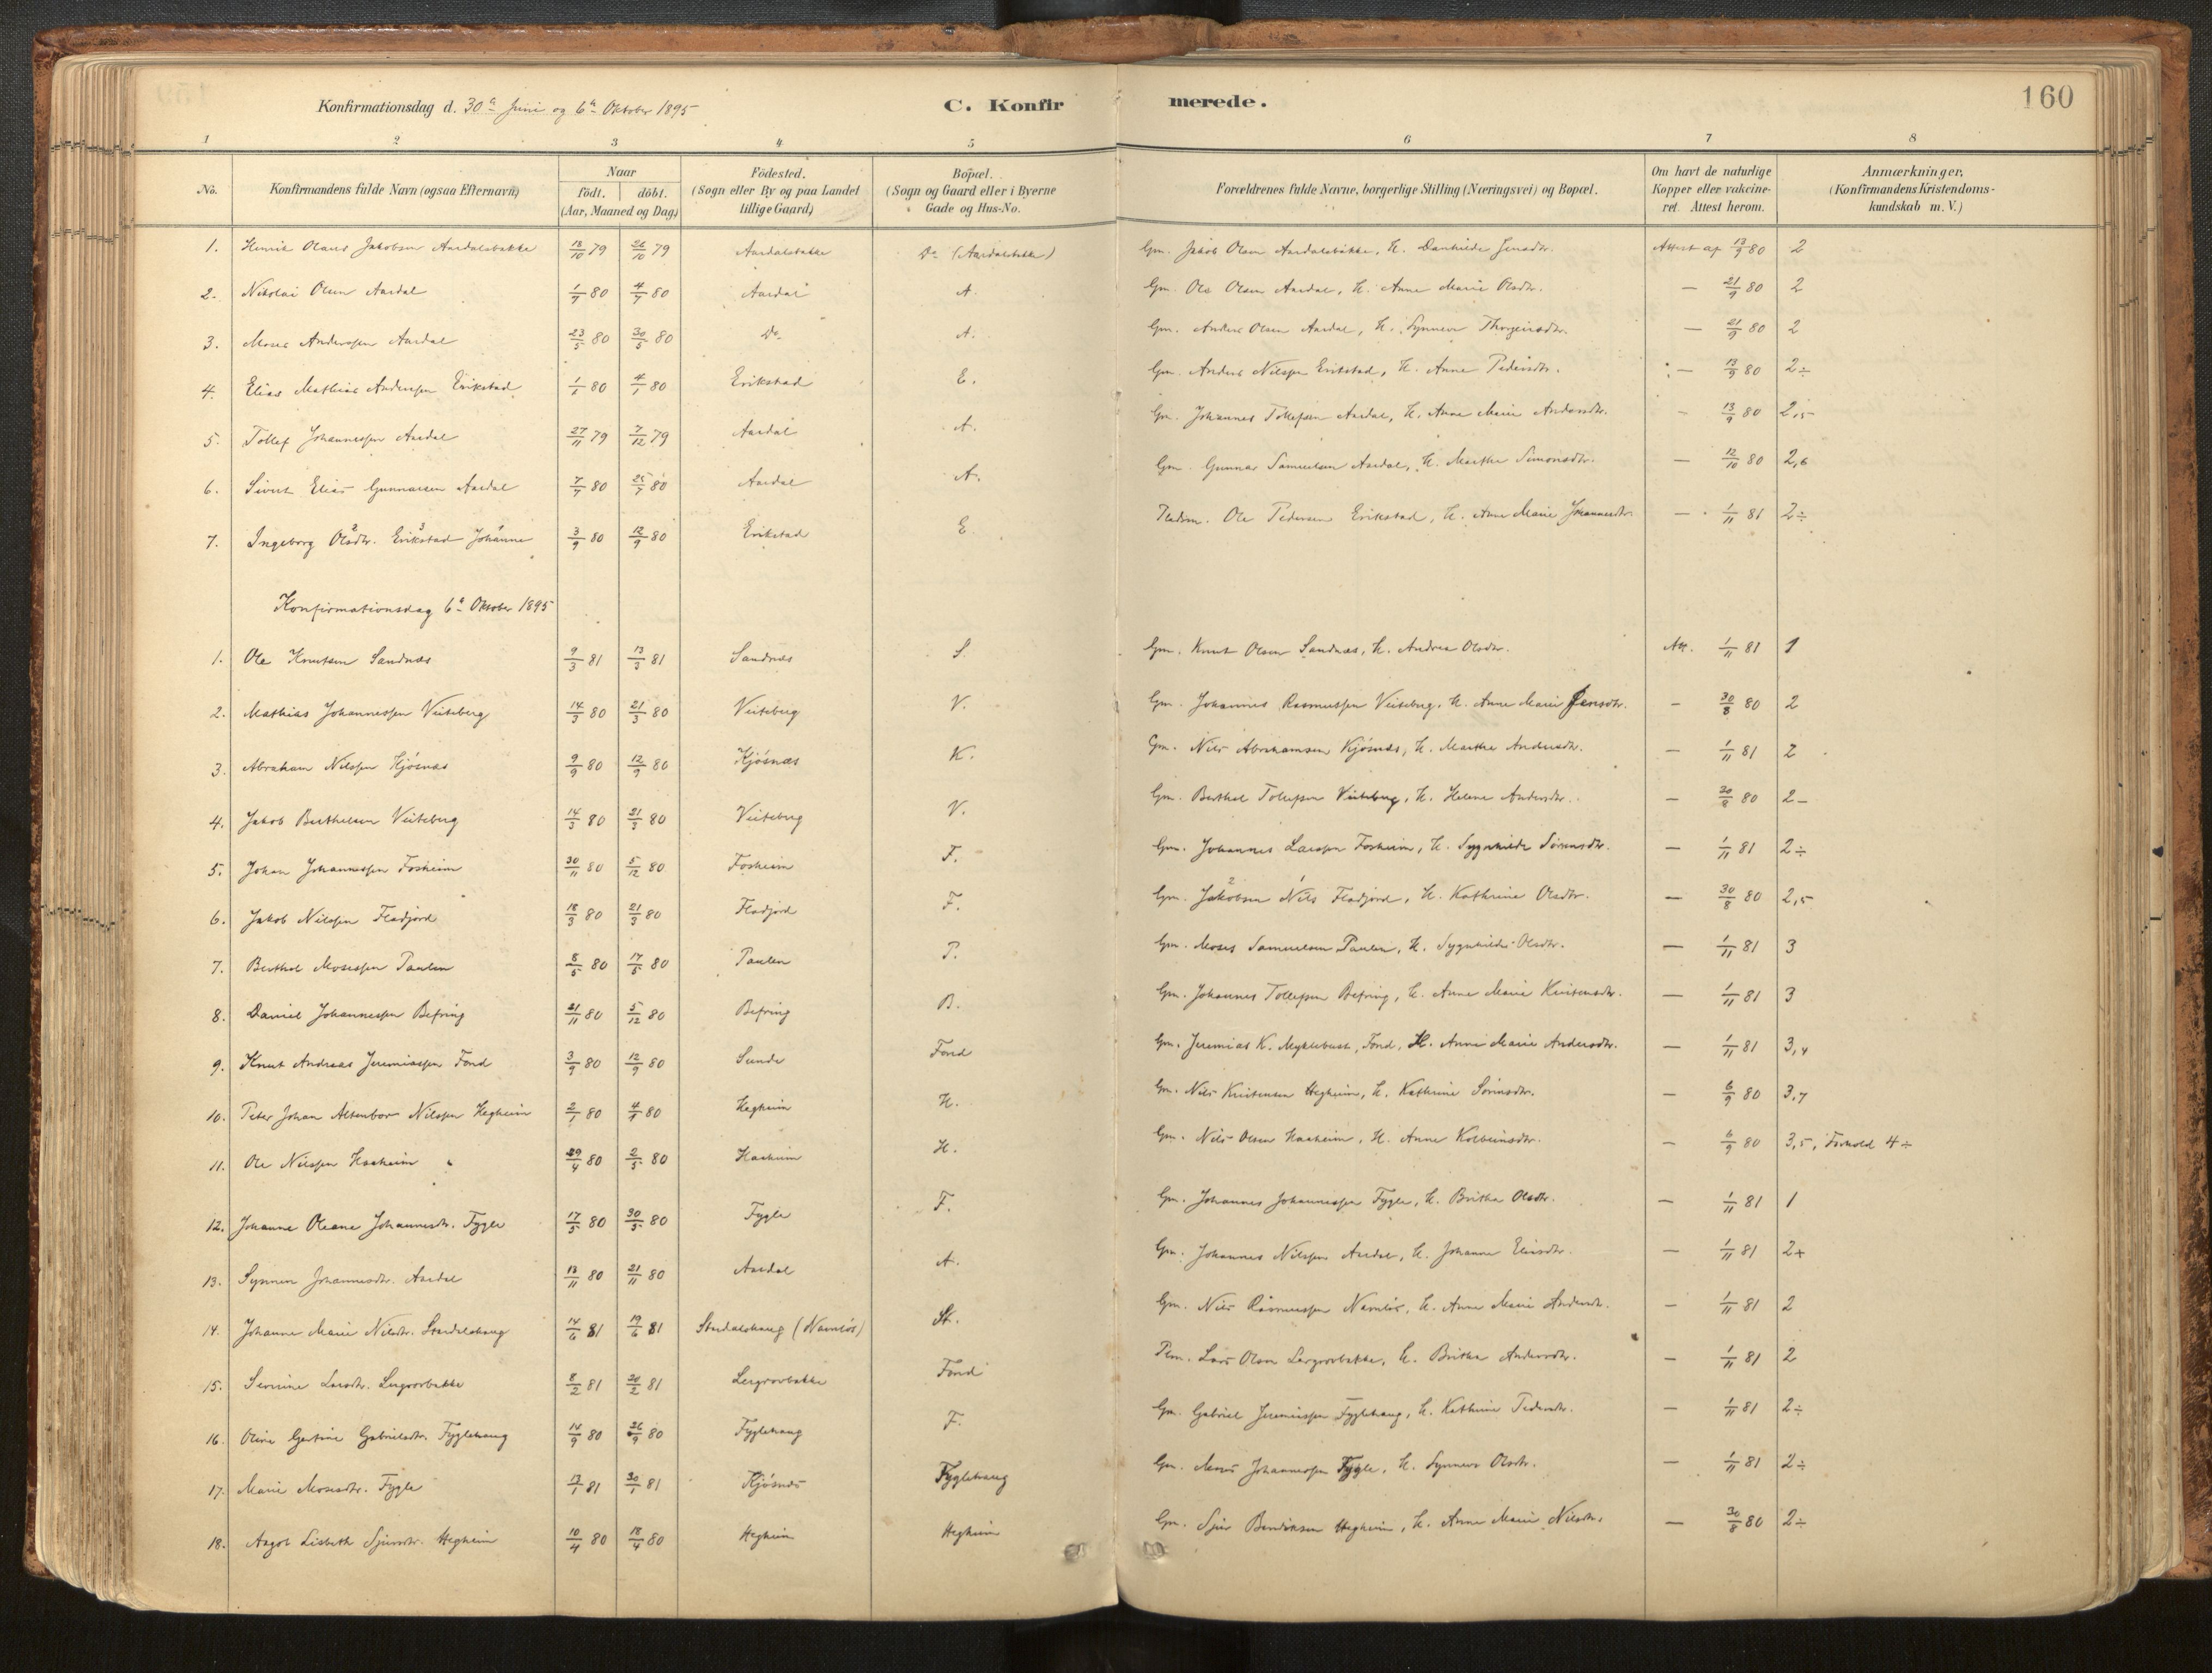 Konfirmationsdag d. 30te Juni og 6te Oktober 1895 C. Konfirmerede. 160
1 2 3 4 5 6 7 8
No. Konfirmandens fulde Navn (ogsaa Efternavn) Naar födt. döbt. (Aar, Maaned og Dag) Födested. (Sogn eller By og paa Landet tillige Gaard) Bopæl. (Sogn og Gaard eller i Byerne Gade og Hus-No. Forældrenes fulde Navne, borgerlige Stilling (Næringsvei) og Bopæl. Om havt de naturlige Kopper eller vakcineret. Attest herom. Anmærkninger, (Konfirmandens Kristendomskundskab m. V.)
1. Henrik Olaus Jakobsen Aardalsbakke 18/10 79 26/10 79 Aardalsbakke Do (Aardalsbakke) Gm. Jakob Olsen Aardalsbakke, H. Danhilde Jensdtr. Attest af 13/9 80 2
2. Nikolai Olsen Aardal 1/7 80 4/7 80 Aardal A. Gm. Ole Olsen Aardal, H. Anne Marie Olsdtr. — 21/9 80 2
3. Moses Anderssen Aardal 23/5 80 30/5 80 Do A. Gm. Anders Olsen Aardal, H. Synneve — 21/9 80 2
4. Elias Mathias Andersen Erikstad 1/1 80 4/1 80 Erikstad E. Gm. Anders Nilssen Erikstad, H. Anne Pedersdtr. — 13/9 80 2÷
5. Tollef Johannessen Aardal 27/11 79 7/12 79 Aardal A. Gm. Johannes Tollefsen Aardal, H. Anne Marie Andersdtr. - 13/9 80 2,5
6. Sivert Elias Gunnarsen Aardal 7/7 80 25/7 80 Aardal A. Gm. Gunnar Samuelsen Aardal, H. Marthe Simonsdtr. — 12/10 80 2,6
7. Ingeborg Olsdtr. Erikstad Johanne 3/9 80 12/9 80 Erikstad E Pladsm. Ole Pedersen Erikstad, H. Anne Marie Johannesdtr. — 1/11 81 2÷
Konfirmationsdag 6te Oktober 1895
1. Ole Knutsen Sandnæs 9/3 81 13/3 81 Sandnæs S. Gm. Knut Olsen Sandnæs, H. Andrea Olsdtr. Att. 1/11 81 1
2. Mathias Johannessen Veiteberg 14/3 80 21/3 80 Veiteberg V. Gm. Johannes Rasmussen Veiteberg, H. Anne Marie Jensdtr. - 30/8 80 2
3. Abraham Nilssen Kjösnæs 9/9 80 12/9 80 Kjösnæs K. Gm. Nils Abrahamsen Kjösnæs, H. Marthe Andersdtr. - 1/11 81 2
4. Jakob Berthelsen Veiteberg 14/3 80 21/3 80 Veiteberg V. Gm. Berthel Tollefsen Veiteberg, H. Helene Andersdtr. — 30/8 80 2-
5. Johan Johannessen Fosheim 30/11 80 5/12 80 Fosheim F. Gm. Johannes Larssen Fosheim, H. Sygnhilde Sörensdtr. — 1/11 81 2÷
6. Jakob Nilssen Fladjord 18/3 80 21/3 80 Fladjord F. Gm. Jakobsen Nils Fladjord, H. Kathrine Olsdtr. — 30/8 80 2,5
7. Berthel Mosessen Paulen 8/5 80 17/5 80 Paulen P. Gm. Moses Samuelsen Paulen, H. Sygnhilde Olsdtr. — 1/11 81 3
8. Daniel Johannessen Befring 21/11 80 5/12 80 Befring B. Gm. Johannes Tollefsen Befring, H. Anne Marie Kristensdtr. — 1/11 81 3
9. Knut Andreas Jeremiassen Fond 3/9 80 12/9 80 Sunde Fond Gm. Jeremias K. Myklebust, Fond, H. Anne Marie Andersdtr. — 1/11 81 3,4
10. Peter Johan Nilssen Hegheim 2/1 80 4/1 80 Hegheim H. Gm. Nils Kristensen Hegheim, H. Kathrine Sörensdtr. — 6/9 80 3,7
11. Ole Nilssen Haaheim 29/4 80 2/5 80 Haaheim H. Gm. Nils Olsen Haaheim, H. Anne Kolbeinsdtr. — 6/9 80 3,5, Forhold 4÷
12. Johanne Oleane Johannesdtr. Fygle 17/5 80 30/5 80 Fygle F. Gm. Johannes Johannessen Fygle, H. Britha Olsdtr. — 1/11 81 1
13. Synneve Johannesdtr. Aardal 13/11 80 21/11 80 Aardal A. Gm. Johannes Nilssen Aardal, H. Johanne Eliasdtr. — 1/11 81 2+
14. Johanne Marie Nilsdtr. Stardalshaug 14/6 81 19/6 81 Stardalshaug (Navnlös) St. Gm. Nils Rasmussen Navnlös, H. Anne Marie Andersdtr. — 1/11 81 2
15. Severine Larsdtr. Lergrovbakke 8/2 81 20/2 81 Lergrovbakke Fond Plm. Lars Olsen Lergrovbakke, H. Britha Andersdtr. — 1/11 81 2
16. Oline Gertine Gabrielsdtr. Fyglehaug 14/9 80 26/9 80 Fyglehaug F. Gm. Gabriel Jeremiassen Fyglehaug, H. Kathrine Pedersdtr. — 1/11 81 2÷
17. Marie Mosesdtr. Fygle 13/1 81 30/1 81 Kjösnæs Fyglehaug Gm. Moses Johannessen Fygle, H. Synneve Olsdtr. — 1/11 81 2÷
18. Aagot Lisbeth Sjursdtr. Hegheim 10/4 80 18/4 80 Hegheim Hegheim Gm. Sjur Bendiksen Hegheim, H. Anne Marie Nilsdtr. — 30/8 80 2÷